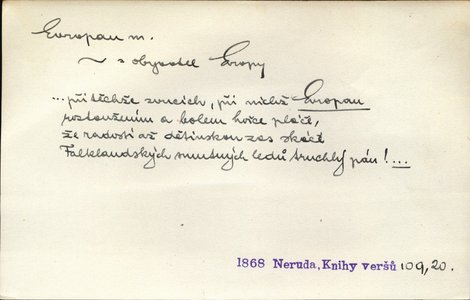 Evropan m.
~ = obyvatel Evropy
... při těchže zvucích, při nichž Evropan
roztoužením a bolem hořce pláče,
že radostí až dětinskou zas skáče
Falklandských smutných ledů truchlý pán! ...
1868 Neruda, Knihy veršů 109,20.